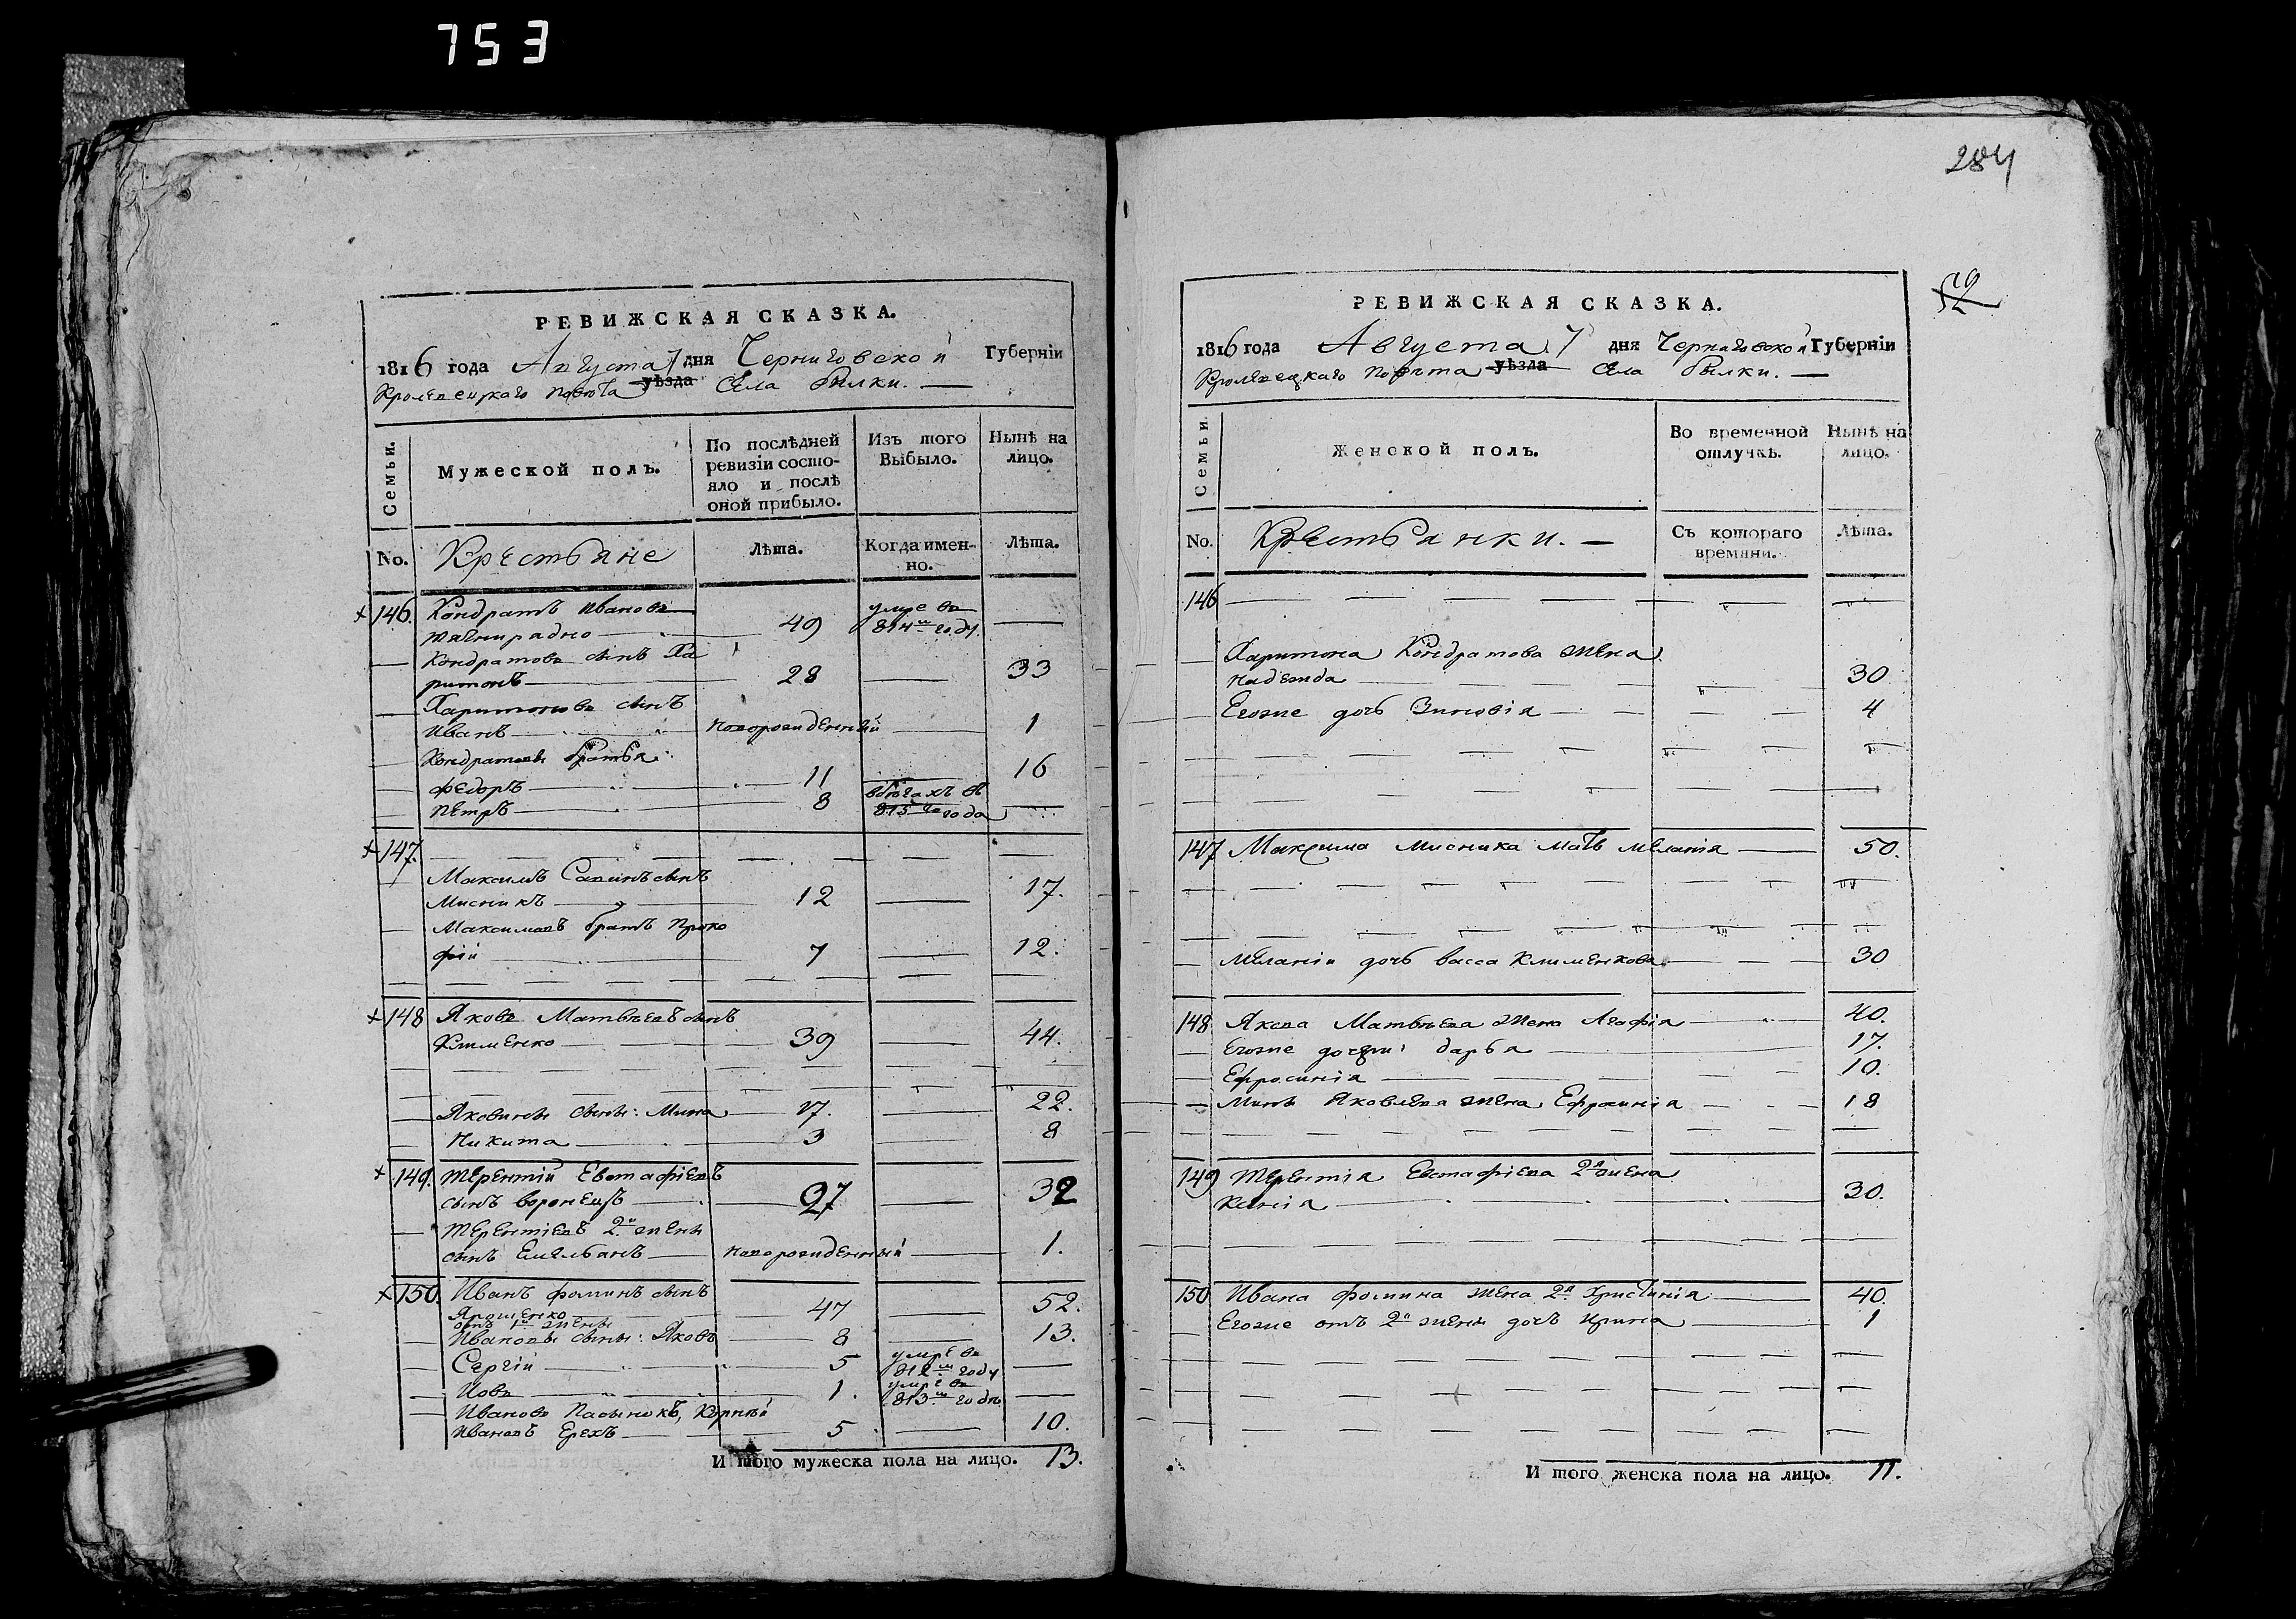 753
РЕВИЖСКАЯ СКАЗКА.
1816 года Августа 7 дня Черниговской Губерніи
Кролевецкаго повѣта уѣзда Села Билки.
Семьи.
Мужеской полъ.
По послѣдней ревизіи состо-
яло и послѣ
оной прибыло.
Изъ того
Выбыло.
Нынѣ на
лицо.
No.
Крестьяне
Лѣта.
Когда имен-
но.
Лѣта.
146. Кондратъ Ивановъ умре въ
49 814м году
Кондратовъ сынъ Ха
ритонъ 28 33
Харитоновъ сынъ
Иванъ новорожденный 1
Кондратовы братья:
федоръ 11 16
Петръ 8 вбѣгахъ съ 815го года
147.
Максимъ Савинъ сынъ
Мисникъ 12 17.
Максимовъ братъ Проко
фій 7 12.
148 Яковъ Матвѣевъ сынъ
Клименко 39 44.
Яковины сыны: Мина 17. 22.
Никита 3 8
149. Терентій Евстафіевъ
сынъ воронецъ 27 32
Терентіевъ 2й жены
сынъ Емельянъ новорожденный 1.
150. Иванъ фоминъ сынъ
Ярошенко 47 52.
отъ 1й жены
Ивановы сыны: Яковъ 8 13.
Сергій 5 умре въ 812м году
Иовъ 1. умре въ 813м году
Ивановъ Пасынокъ, Корнѣй
Ивановъ Ерехъ 5 10.
И того мужеска пола на лицо. 13.
284
РЕВИЖСКАЯ СКАЗКА.
1816 года Августа 7 дня Черниговской Губерніи
Кролевецкаго Повѣта уѣзда Села Билки.
Семьи.
Женской полъ.
Во временной
отлучкѣ.
Нынѣ на
лицо.
No.
Крестьянки.
Съ котораго
времяни.
Лѣта.
146
Харитона Кондратова жена
Надежда 30
Егоже дочь Зиновія 4
147 Максима Мисника мать Меланія 50.
Меланіи дочь васса Клименкова 30
148. Якова Матвѣева жена Агафія 40.
Егоже дочери дарья 17.
Ефросинія 10.
Мины Яковлева жена Ефросинія 18
149 Терентія Евстафіева 2я жена
Ксенія 30.
150 Ивана фомина жена 2я Христинія 40.
Егоже отъ 2й жены дочь Ирина 1
И того женска пола на лицо. 11.